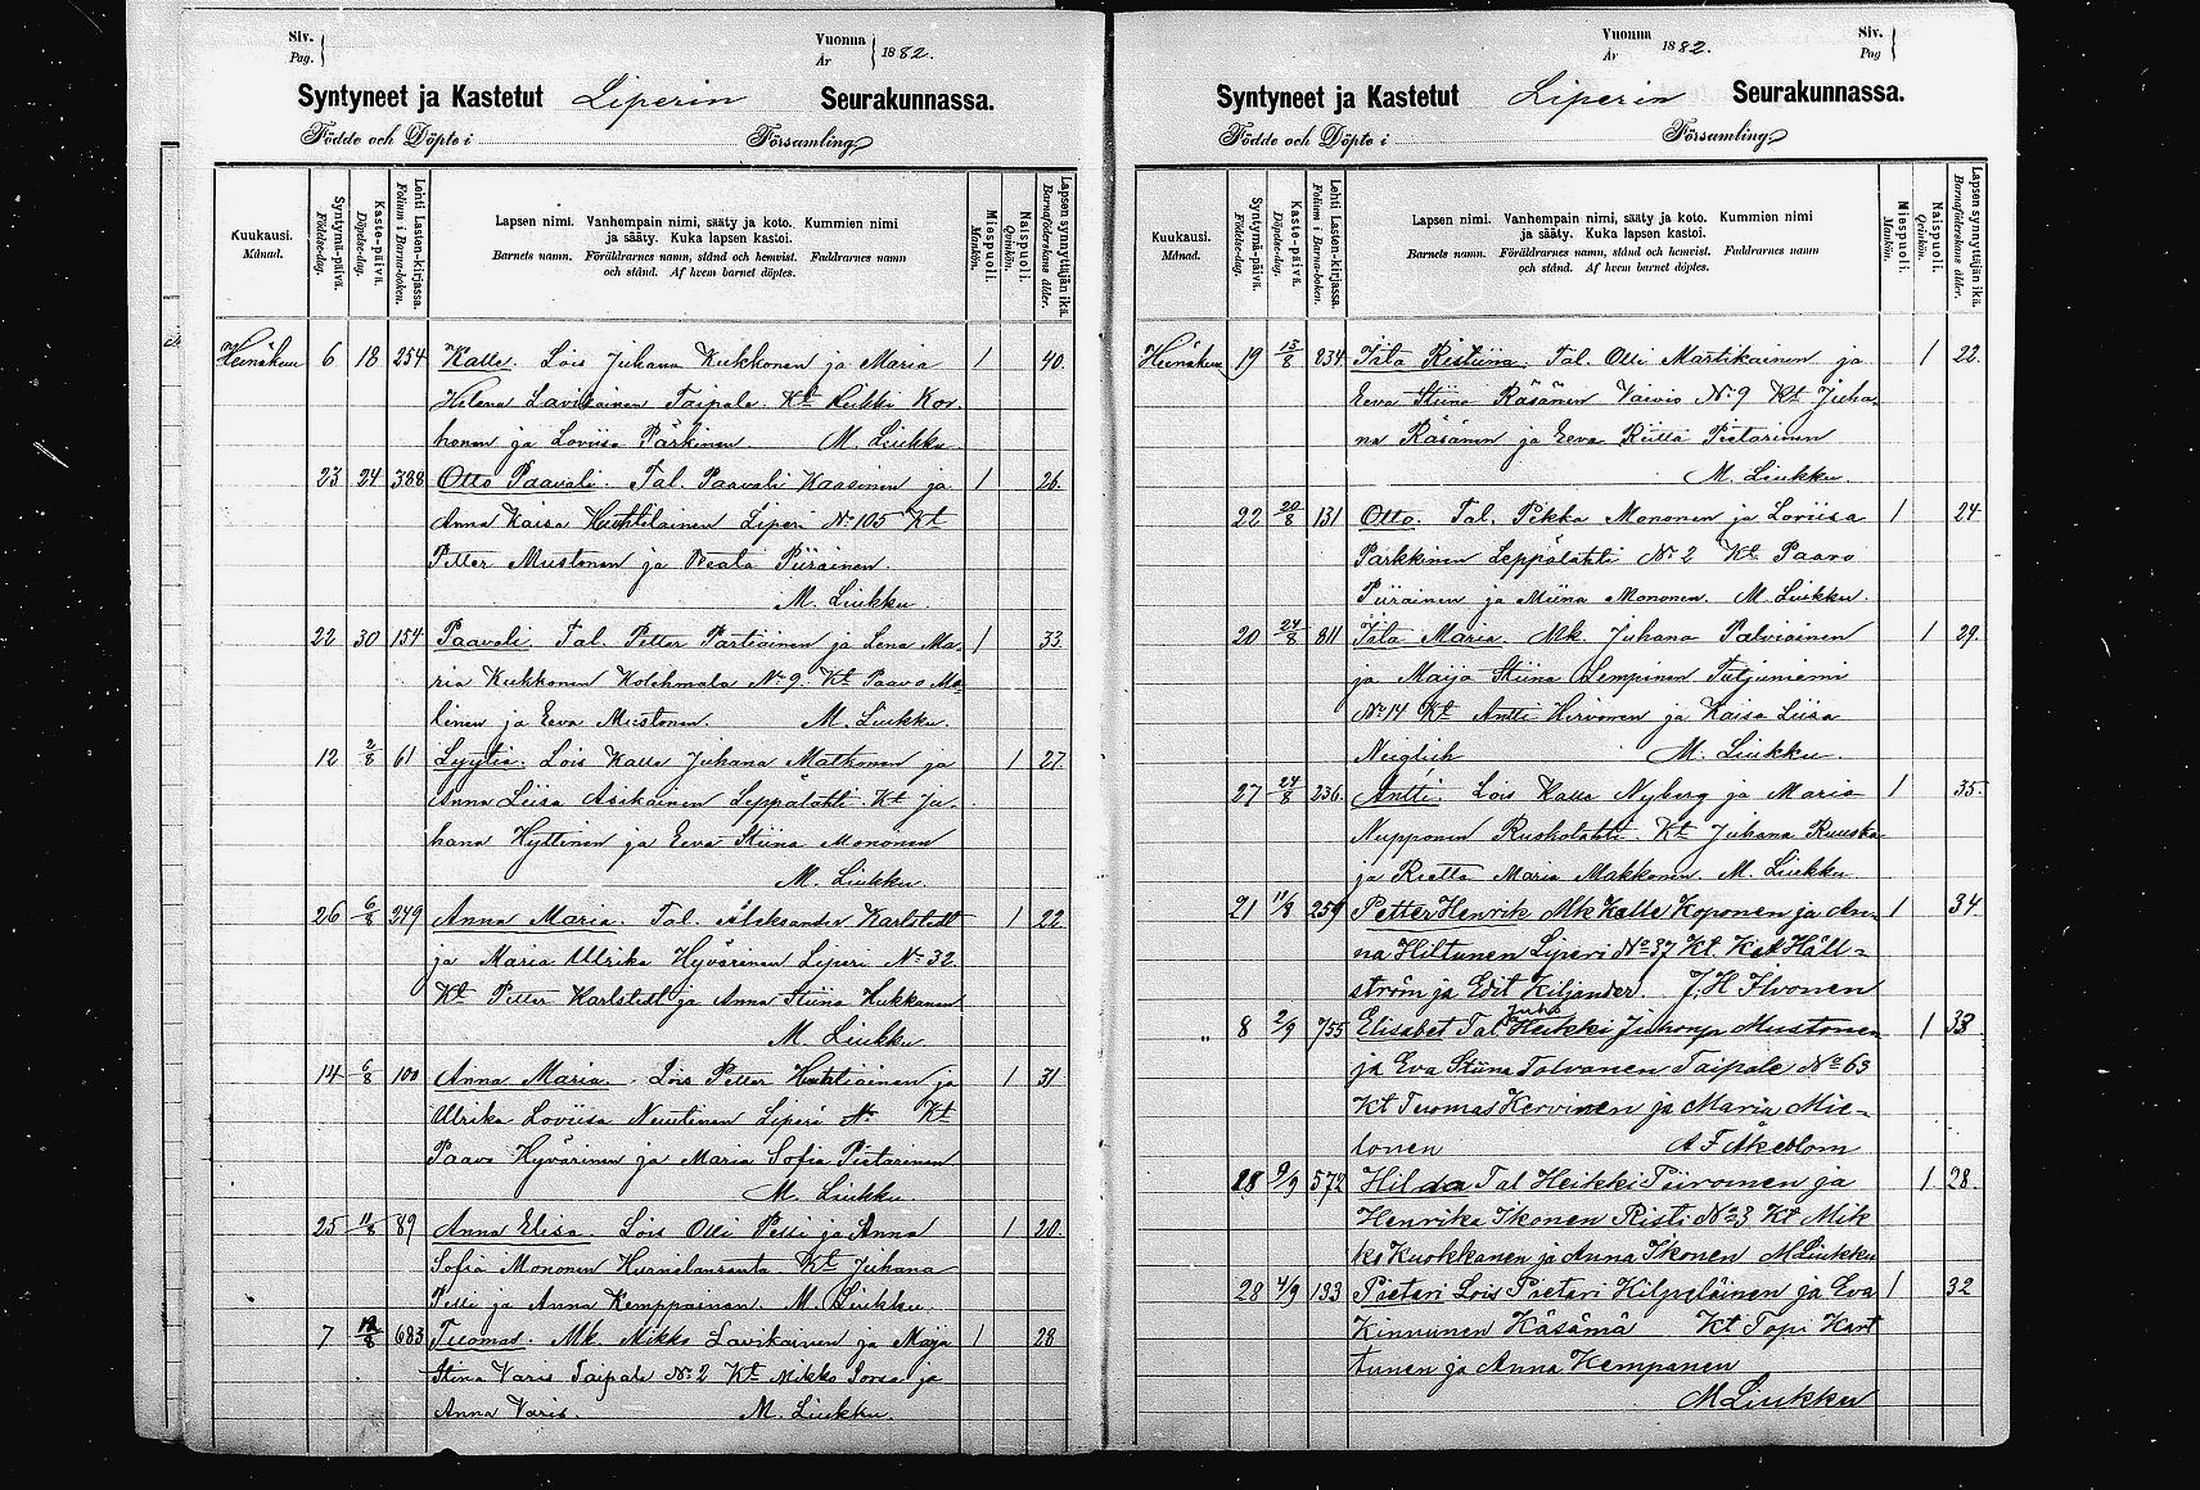 Siv.
Pag.
Vuonna
År
1882.
Syntyneet ja Kastetut Liperin Seurakunnassa.
Födde och Döpte i Församling
Kuukausi.
Månad.
Syntymä-päivä.
Födelse-dag.
Kaste-päivä.
Döpelse-dag.
Lehti Lasten-kirjassa.
Folium i Barna-boken.
Lapsen nimi. Vanhempain nimi, sääty ja koto. Kummien nimi
ja sääty. Kuka lapsen kastoi.
Barnets namn. Föräldrarnes namn, stånd och hemvist. Faddrarnes namn
och stånd. Af hvem barnet döptes.
Miespuoli.
Mankön.
Naispuoli.
Qvinkön.
Lapsen synnyttäjän ikä.
Barnaföderskans ålder.
Heinäkuu 6 18 254 Kalle. Lois Juhana Kukkonen ja Maria 1 40.
Helena Lavikainen Taipale. Kt Heikki Kor-
honen ja Loviisa Pärkinen. M. Liukku.
23 24 388 Otto Paavali. Tal. Paavali Kaasinen ja 1 26.
Anna Kaisa Huttilainen Liperi No 105 Kt
Petter Mustonen ja Beata Piirainen.
M. Liukku.
22 30 154 Paavali. Tal. Petter Partiainen ja Lena Ma- 1 33.
ria Kukkonen Kolehmala No 9. Kt Paavo Mo-
linen ja Eeva Mustonen. M. Liukku.
12 2/8 61 Lyytia. Lois Kalle Juhana Matkonen ja 1 27.
Anna Liisa Asikainen Leppälahti. Kt Ju-
hana Hyttinen ja Eeva Stiina Mononen
M. Liukku.
26 6/8 249 Anna Maria. Tal. Aleksander Karlstedt 1 22.
ja Maria Ulrika Hyvärinen Liperi No 32.
Kt Petter Karlstedt ja Anna Stiina Hukkanen
M. Liukku
14 6/8 100 Anna Maria. Lois Petter Huttiainen ja 1 31
Ulrika Loviisa Nuutinen Liperi No Kt
Paavo Hyvärinen ja Maria Sofia Pietarinen
M. Liukku.
25 11/8 89 Anna Elisa. Lois Olli Pelli ja Anna 1 20.
Sofia Mononen Kt Juhana
Pelli ja Anna Kemppainen. M. Liukku.
7 12/8 683 Tuomas. Mk. Mikko Lavikainen ja Maija 1 28
Stina Varis Taipale No 2 Kt Mikko Sorsa ja
Anna Varis. M. Liukku.
Vuonna
År
1882.
Siv.
Pag
Syntyneet ja Kastetut Liperin Seurakunnassa.
Födde och Döpte i Församling
Kuukausi.
Månad.
Syntymä-päivä.
Födelse-dag.
Kaste-päivä.
Döpelse-dag.
Lehti Lasten-kirjassa.
Folium i Barna-boken.
Lapsen nimi. Vanhempain nimi, sääty ja koto. Kummien nimi
ja sääty. Kuka lapsen kastoi.
Barnets namn. Föräldrarnes namn, stånd och hemvist. Faddrarnes namn
och stånd. Af hvem barnet döptes.
Miespuoli.
Mankön.
Naispuoli.
Qvinkön.
Lapsen synnyttäjän ikä.
Barnaföderskans ålder.
Heinäkuu 19 13/8 234 Iita Ristiina. Tal. Olli Martikainen ja 1 22.
Eeva Stiina Räsänen Vaivio No 9 Kt Juha-
na Räsänen ja Eeva Pietarinen
M. Liukku.
22 20/8 131 Otto. Tal. Pekka Mononen ja Loviisa 1 24
Parkkinen Leppälahti No 2 Kt Paavo
Piirainen ja Miina Mononen. M. Liukku.
20 24/8 811 Iita Maria. Mk. Juhana Palviainen 1 29.
ja Maija Stiina Lempinen Tutjuniemi
No 14 Kt Antti Hirvonen ja Kaisa Liisa
Neiglich M. Liukku.
27 24/8 236. Antti. Lois Kalle Nyberg ja Maria 1 35.
Nupponen Ruokolahti. Kt Juhana Ruuska
ja Reetta Maria Makkonen M. Liukku
21 11/8 259 Petter Henrik Mk Kalle Koponen ja An- 1 34
na Hiltunen Liperi No 37 Kt. Käll-
ström ja Edit Kiljander. J. H Ilvonen
" 8 2/9 755 Elisabet Tal Juho Heikki Mustonen 1 33
ja Eva Stiina Tolvanen Taipale No 63
Kt Tuomas Kervinen ja Maria Mie-
tonen A F Åkeblom
28 9/9 572 Hilda Tal Heikki Piironen ja 1 28.
Henrika Ikonen Risti No 3 Kt Mik
ko Kuokkanen ja Anna Ikonen M Liukku
28 4/9 133 Pietari Lois Pietari Hilpeläinen ja Eva 1 32
Kinnunen Käsämä Kt Topi Kart
tunen ja Anna Kempanen
M Liukku